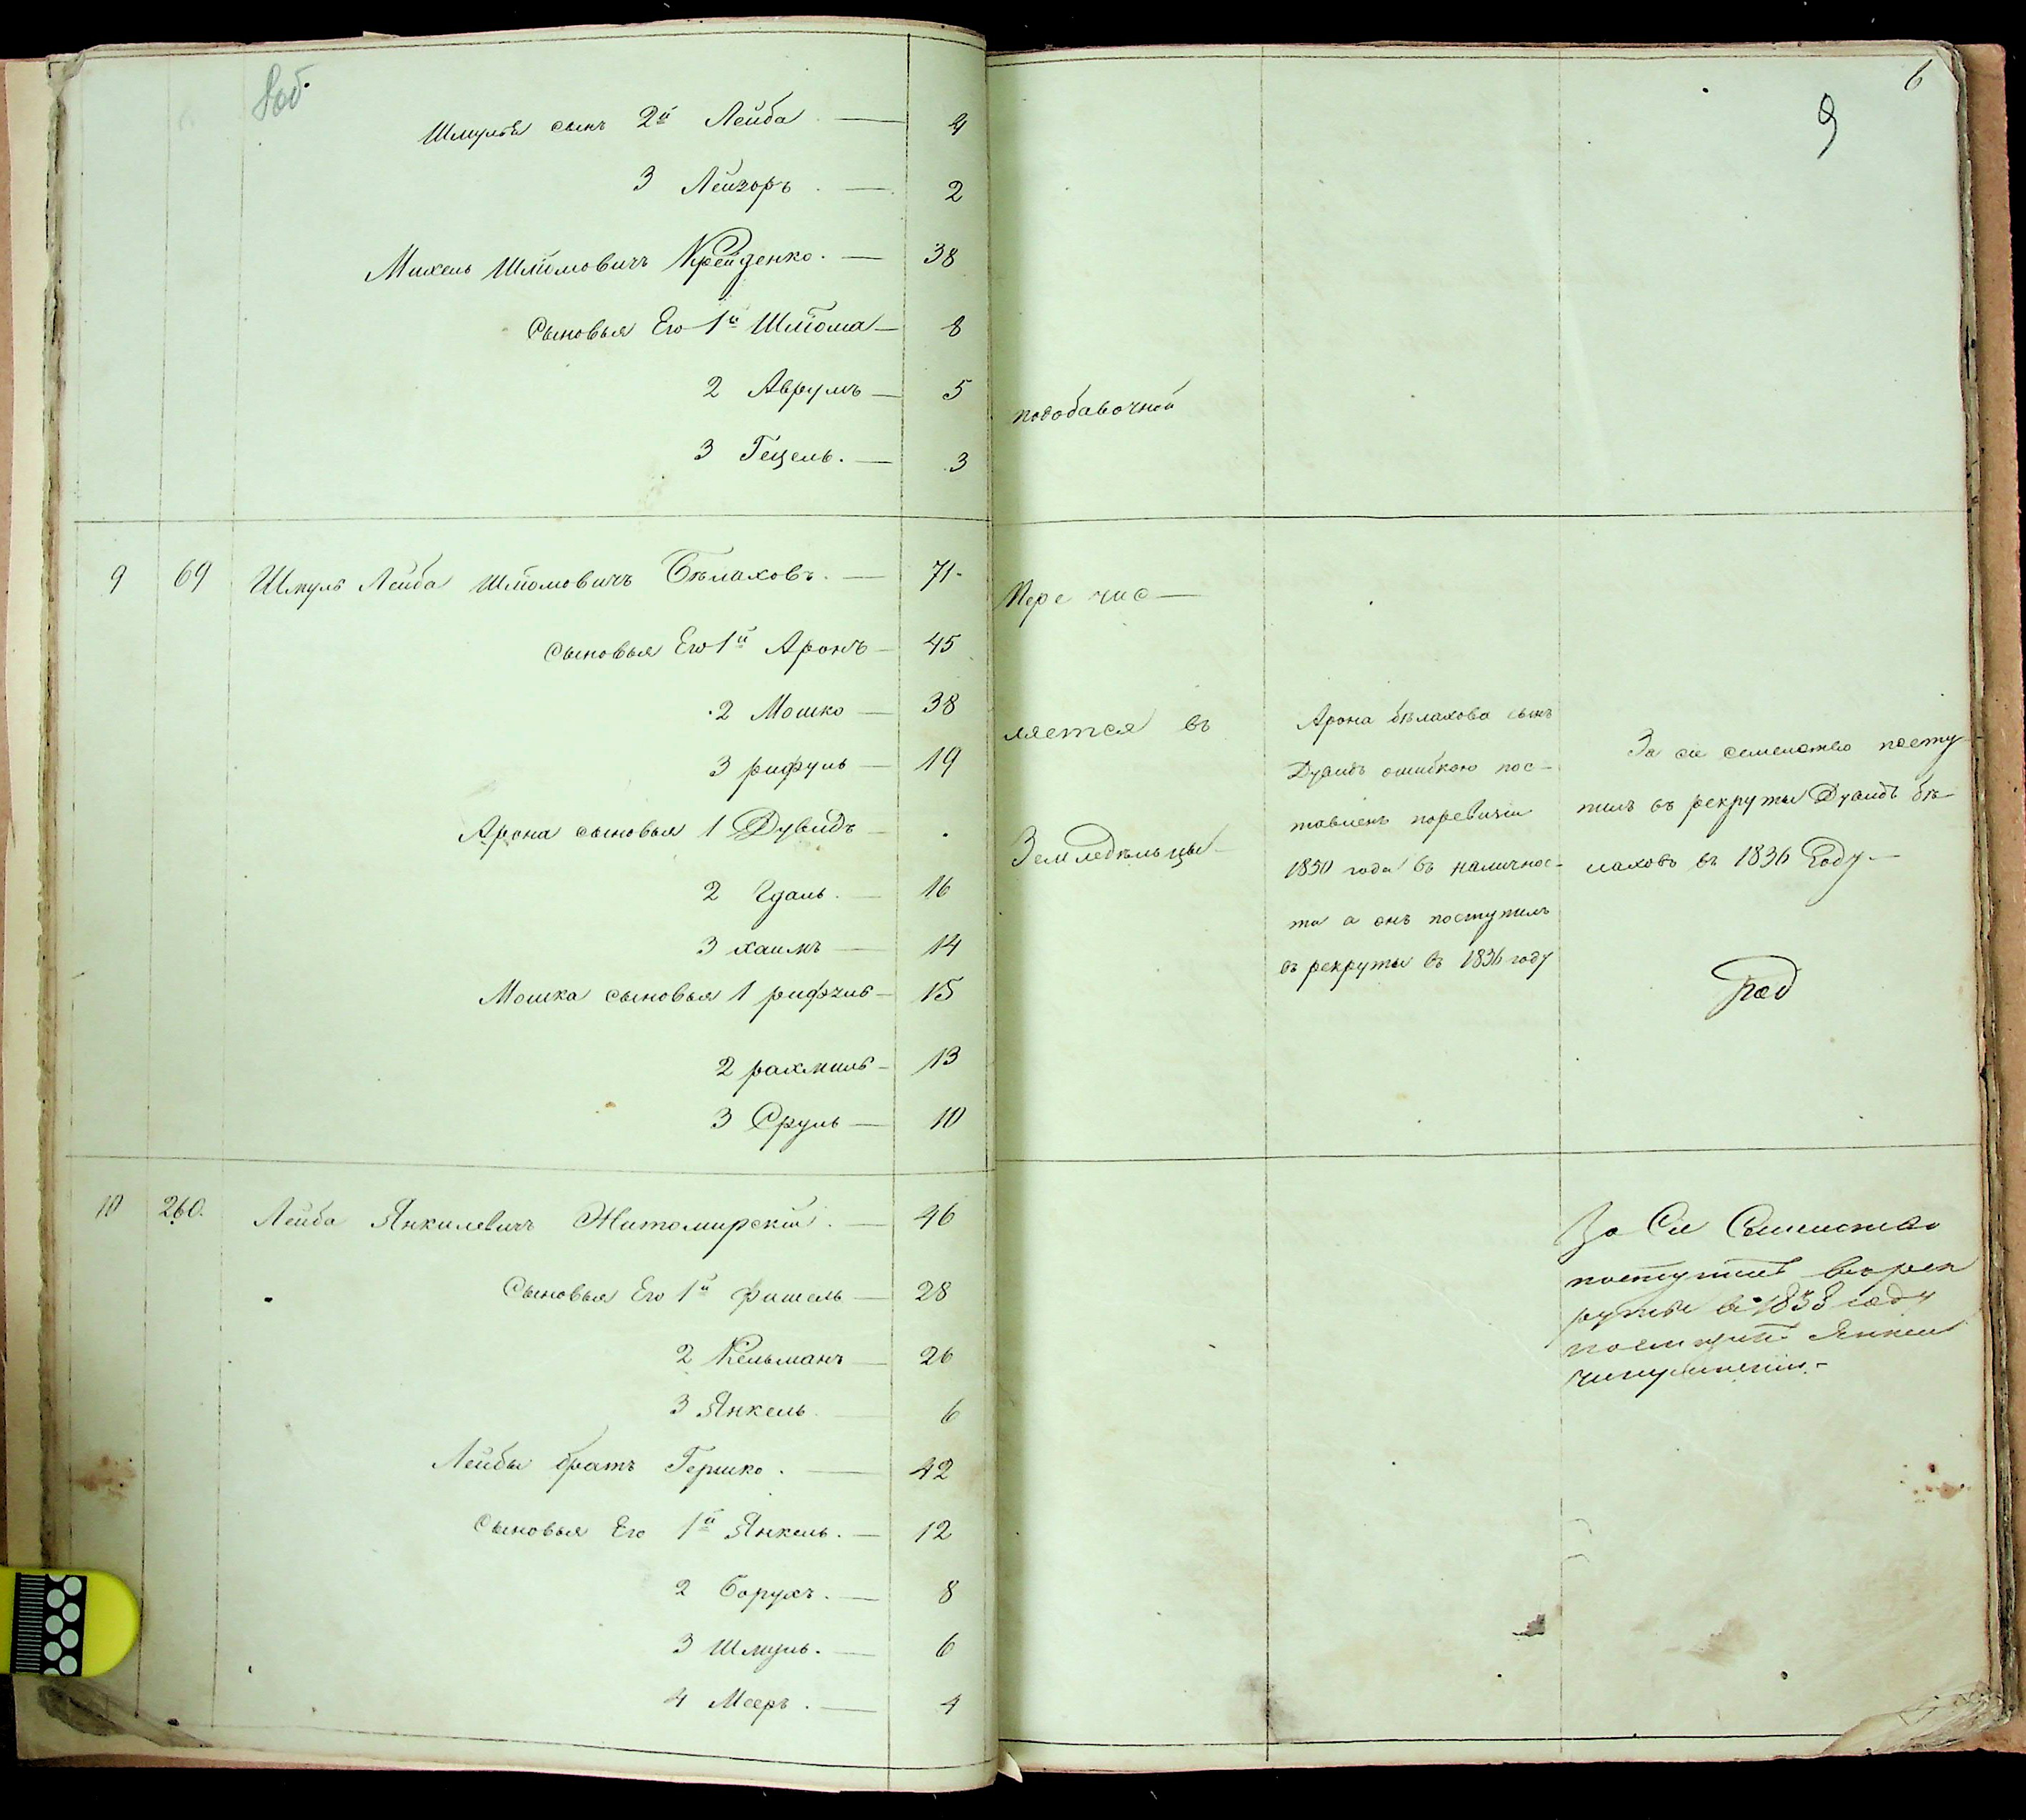 8 об.
Шмуля сынъ 2й Лейба — 4
3 Лейзоръ — 2
Михель Шліомовичъ Крейденко — 38
Сыновья Его 1й Шліома — 8
2 Аврумъ — 5
3 Гецель — 3
9 69 Шмуль Лейба Шліомовичъ Бѣлаховъ — 71
Сыновья Его 1й Аронъ — 45
2 Мошко — 38
3 рифуль — 19
Арона сыновья 1 Дувидъ — .
2 Гдаль — 16
3 хаимъ — 14
Мошка сыновья 1 — 15
2 рахмиль — 13
3 Сруль — 10
10 260. Лейба Янкилевичъ Житомирскій — 46
Сыновья Его 1й фишель — 28
2 Кельманъ — 26
3 Янкель — 6
Лейбы братъ Гершко — 42
Сыновья Его 1й Янкель — 12
2 Борухъ — 8
3 Шмуль — 6
4 Мееръ — 4
6
9
подобавочной
Пере чис—
ляется въ
Земледѣльцы
Арона бѣлахова сынъ
Дувидъ ошибкою пос—
тавленъ поревизіи
1850 года въ наличнос—
ти а онъ поступилъ
въ рекруты въ 1836 году
За сіе семейство посту
пилъ въ рекруты Дувидъ бѣ—
лаховъ въ 1836 Году —
За Сіе Семейство
поступилъ в рек
руты в 1838 году
Янкель